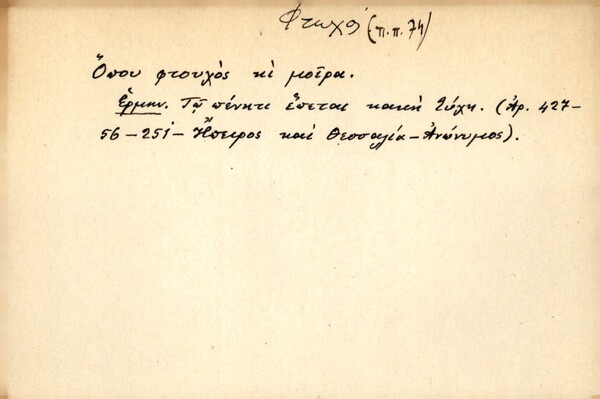 Φτωχό (π.π. 74)
Ὅπου φτουχὸς κὶ μοῖρα.
Ἑρμην. Τῷ πένητι ἕπεται κακὴ τύχη. (Ἀρ. 427-
56-251-Ἤπειρος καὶ Θεσσαλία-Ἀνώνυμος).